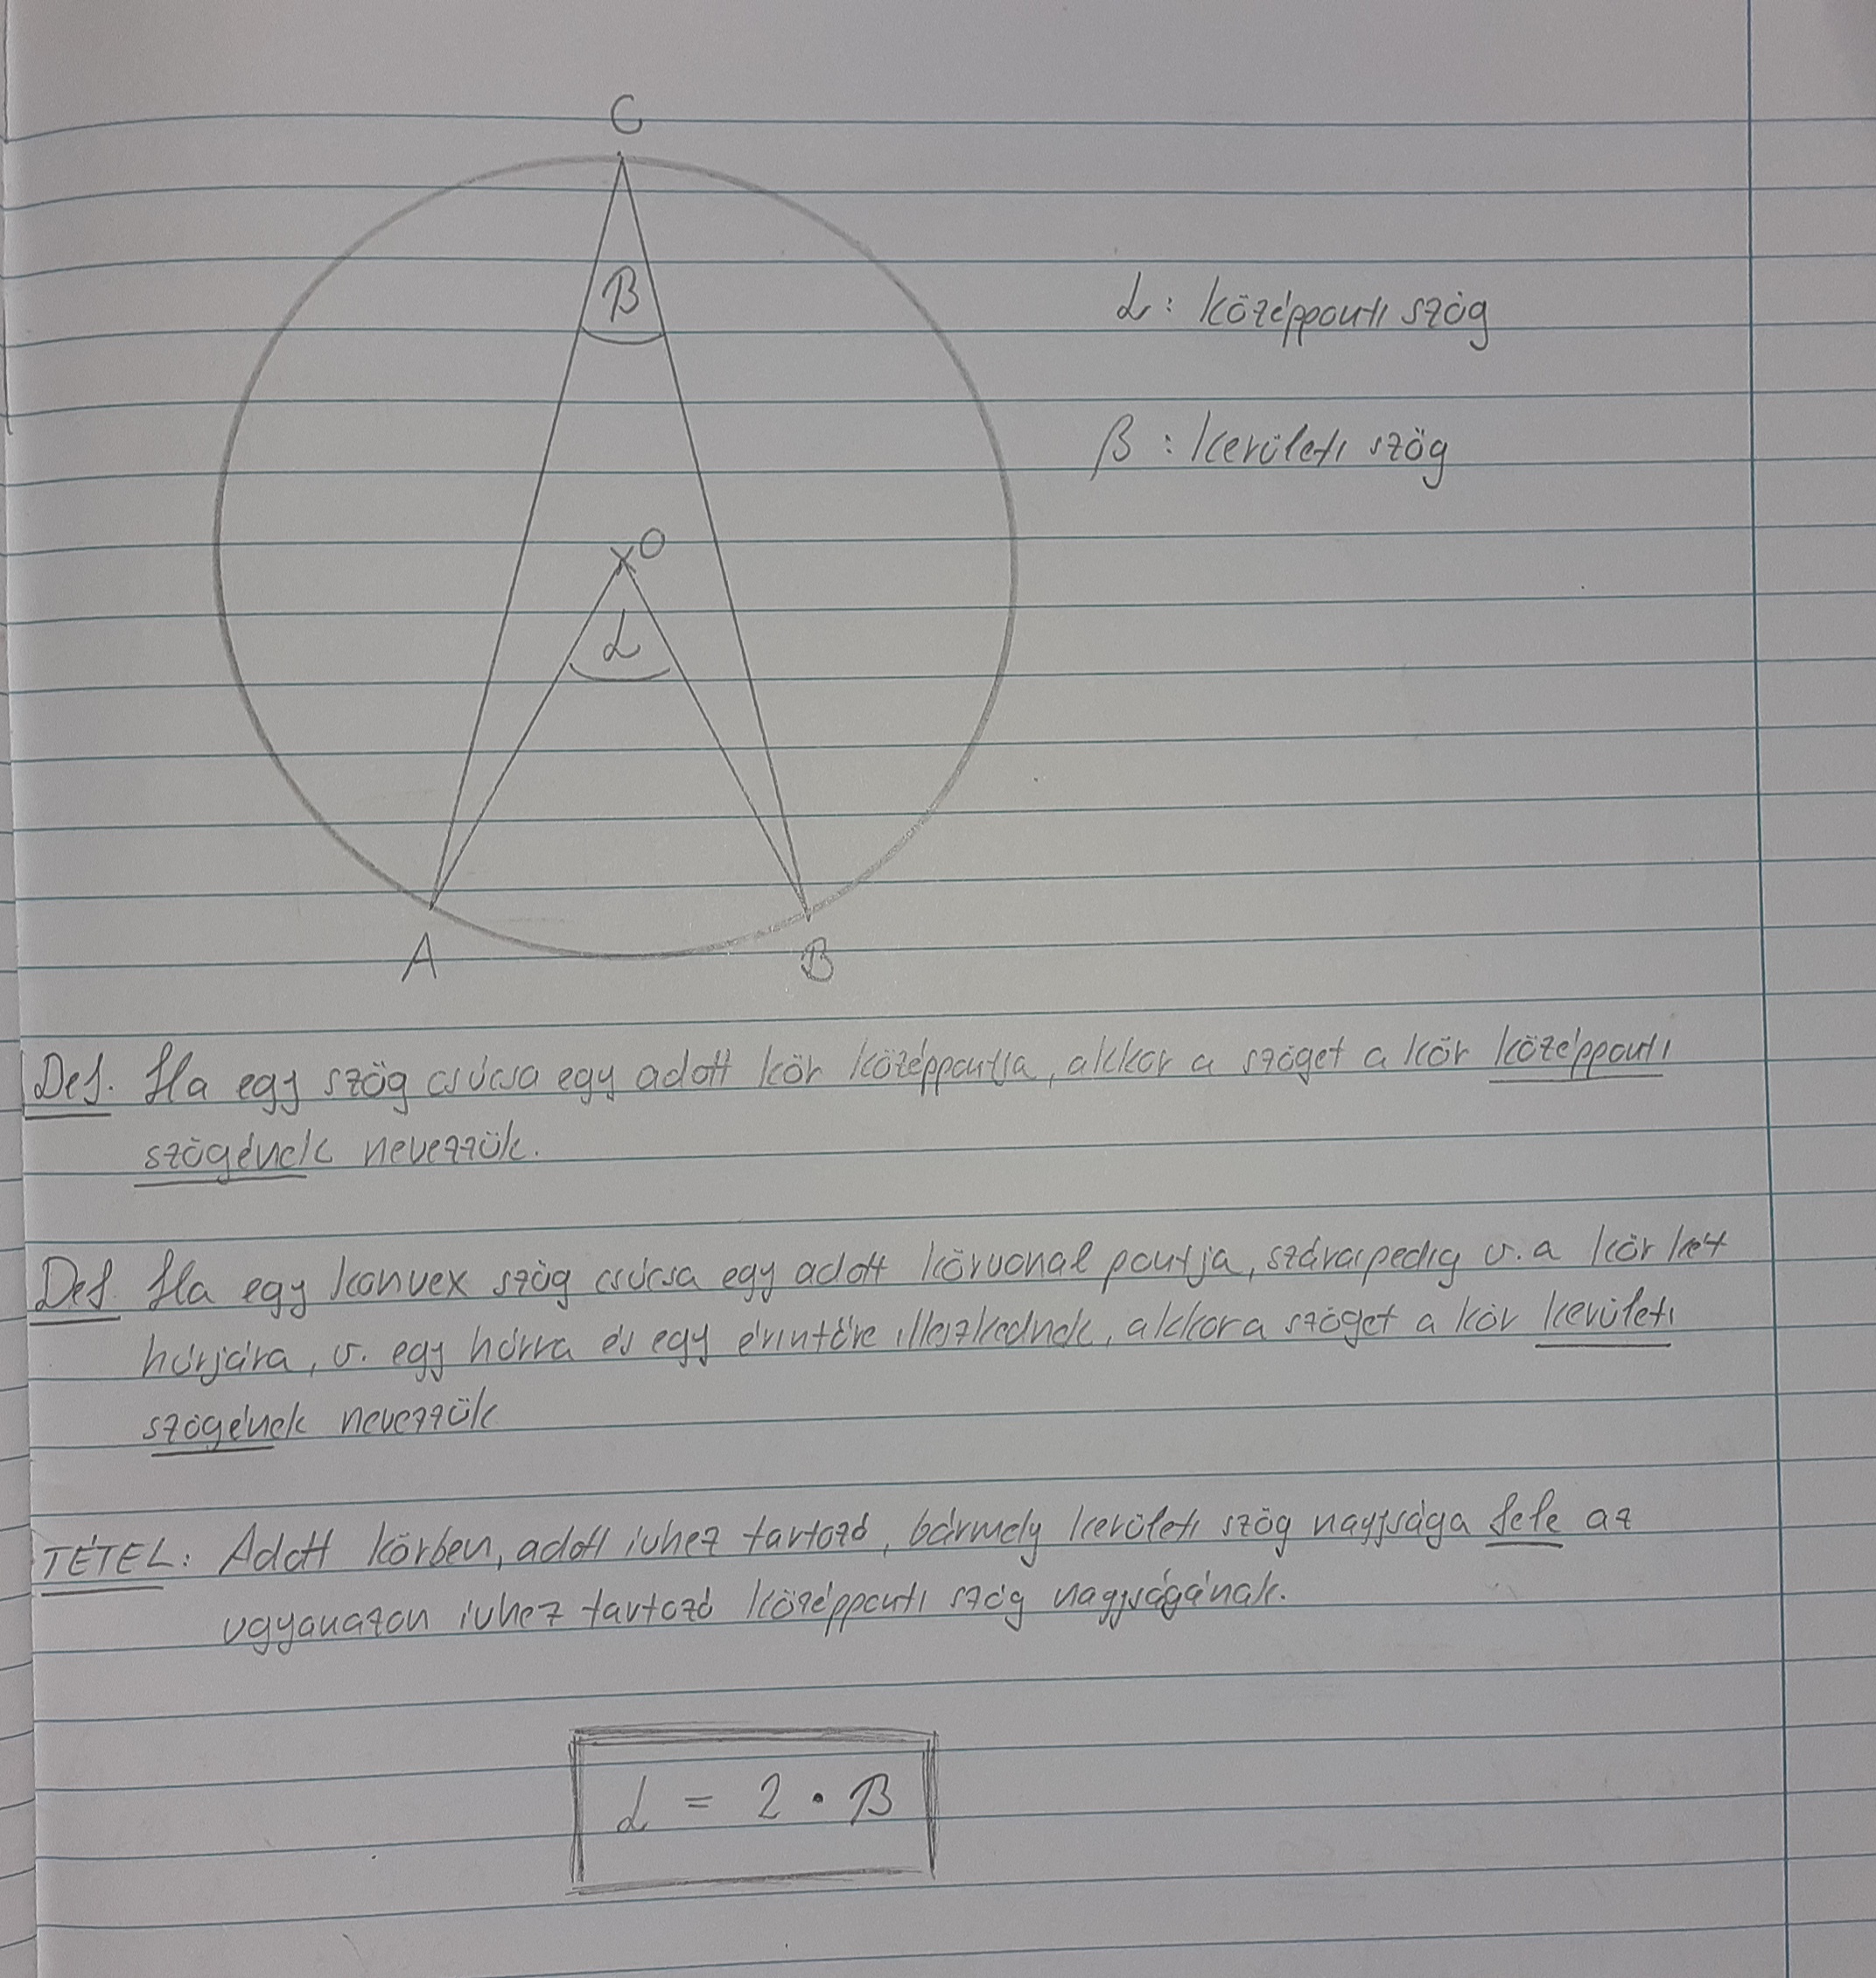 C
β
α: középponti szög
β: kerületi szög
O
α
A
B
Def. Ha egy szög csúcsa egy adott kör középpontja, akkor a szöget a kör középponti
szögének nevezzük.
Def. Ha egy konvex szög csúcsa egy adott körvonal pontja, szárai pedig v. a kör két
húrjára, v. egy húrra és egy érintőre illeszkednek, akkor a szöget a kör kerületi
szögének nevezzük
TÉTEL: Adott körben, adott ívhez tartozó, bármely kerületi szög nagysága fele az
ugyanazon ívhez tartozó középponti szög nagyságának.
α = 2 · β